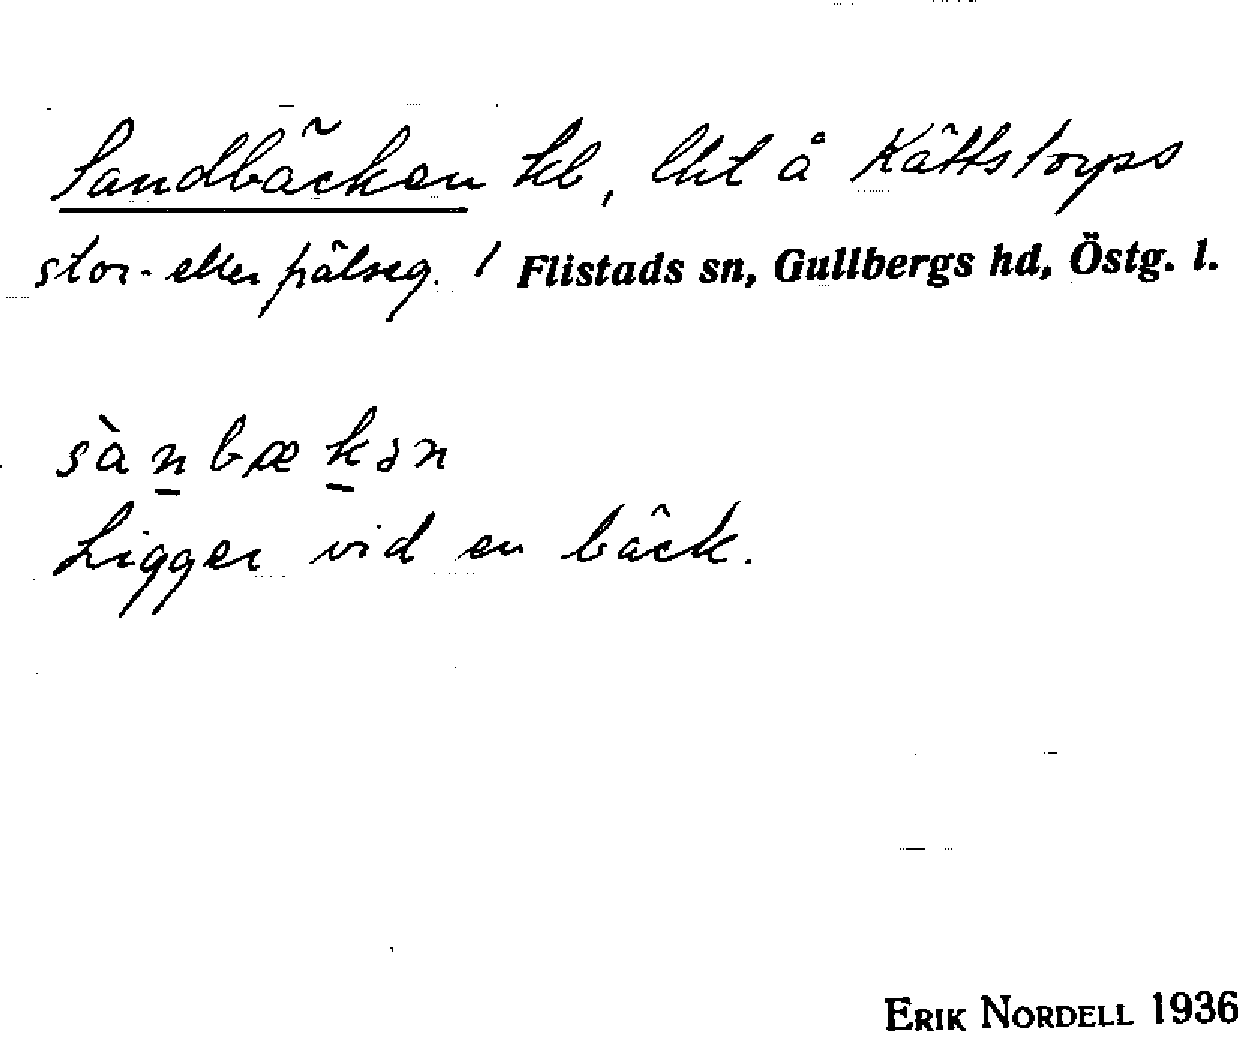 Sandbäcken tcb, lht å Kättstorps
stor- eller frälseg. / Flistads sn, Gullbergs hd, Östg. l.
sànbækən
Ligger vid en bäck.
ERIK NORDELL 1936